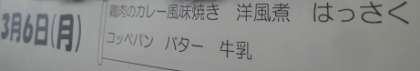 3月6日(月)
鶏肉のカレー風味焼き 洋風煮 はっさく
コッペパン バター 牛乳